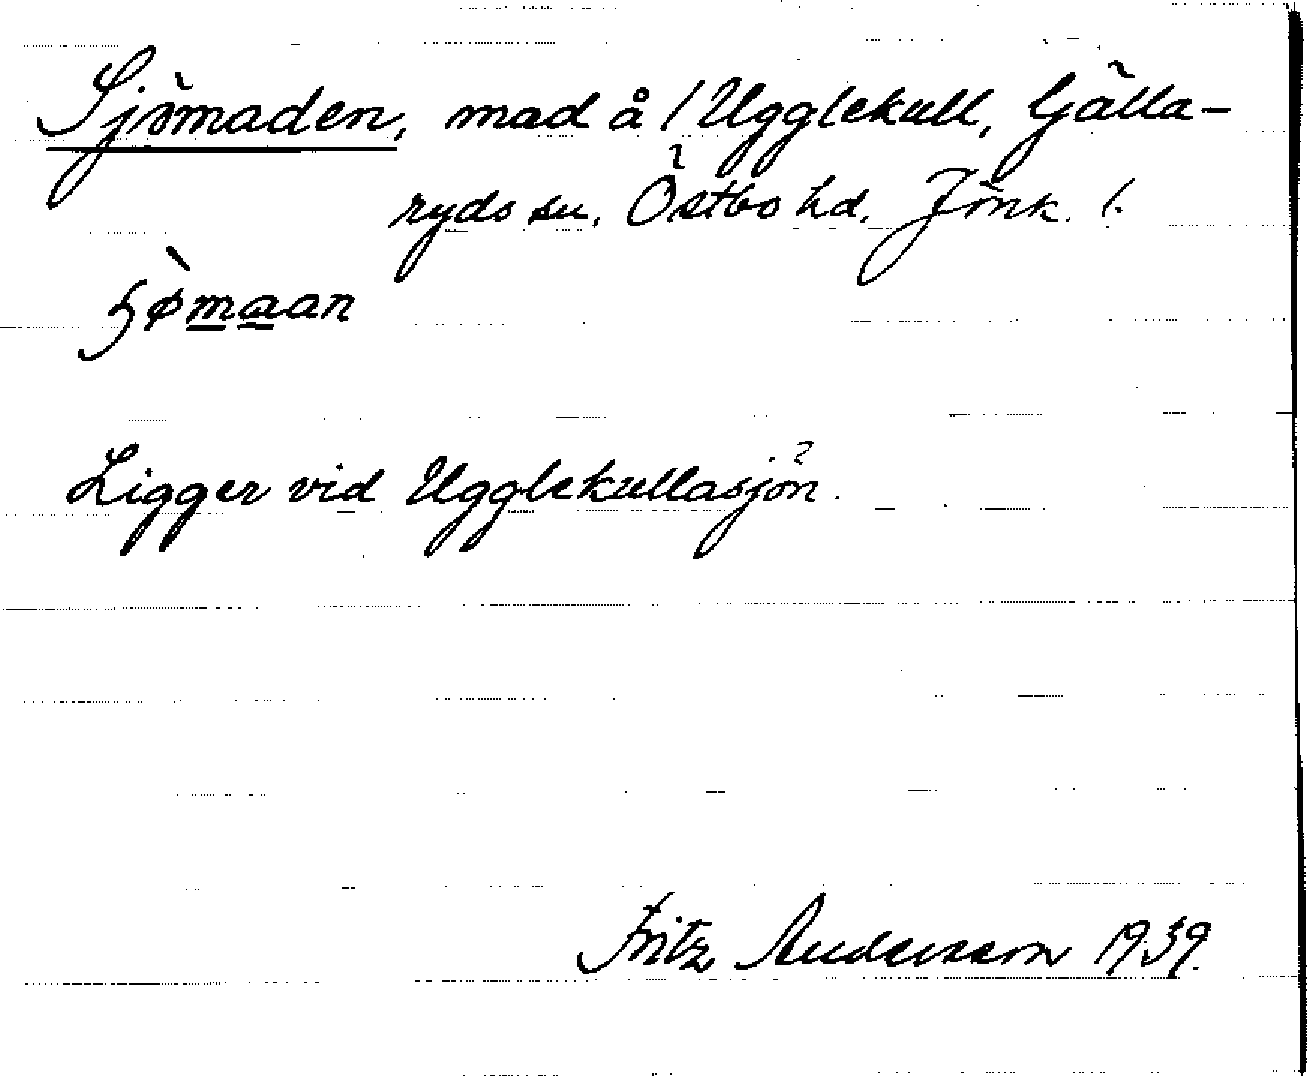 Sjömaden, mad å 1 Ugglekull, Gälla-
ryds sn, Östbo hd, Jönk. l.
Ligger vid Ugglekullasjön.
Fritz Andersson 1939.